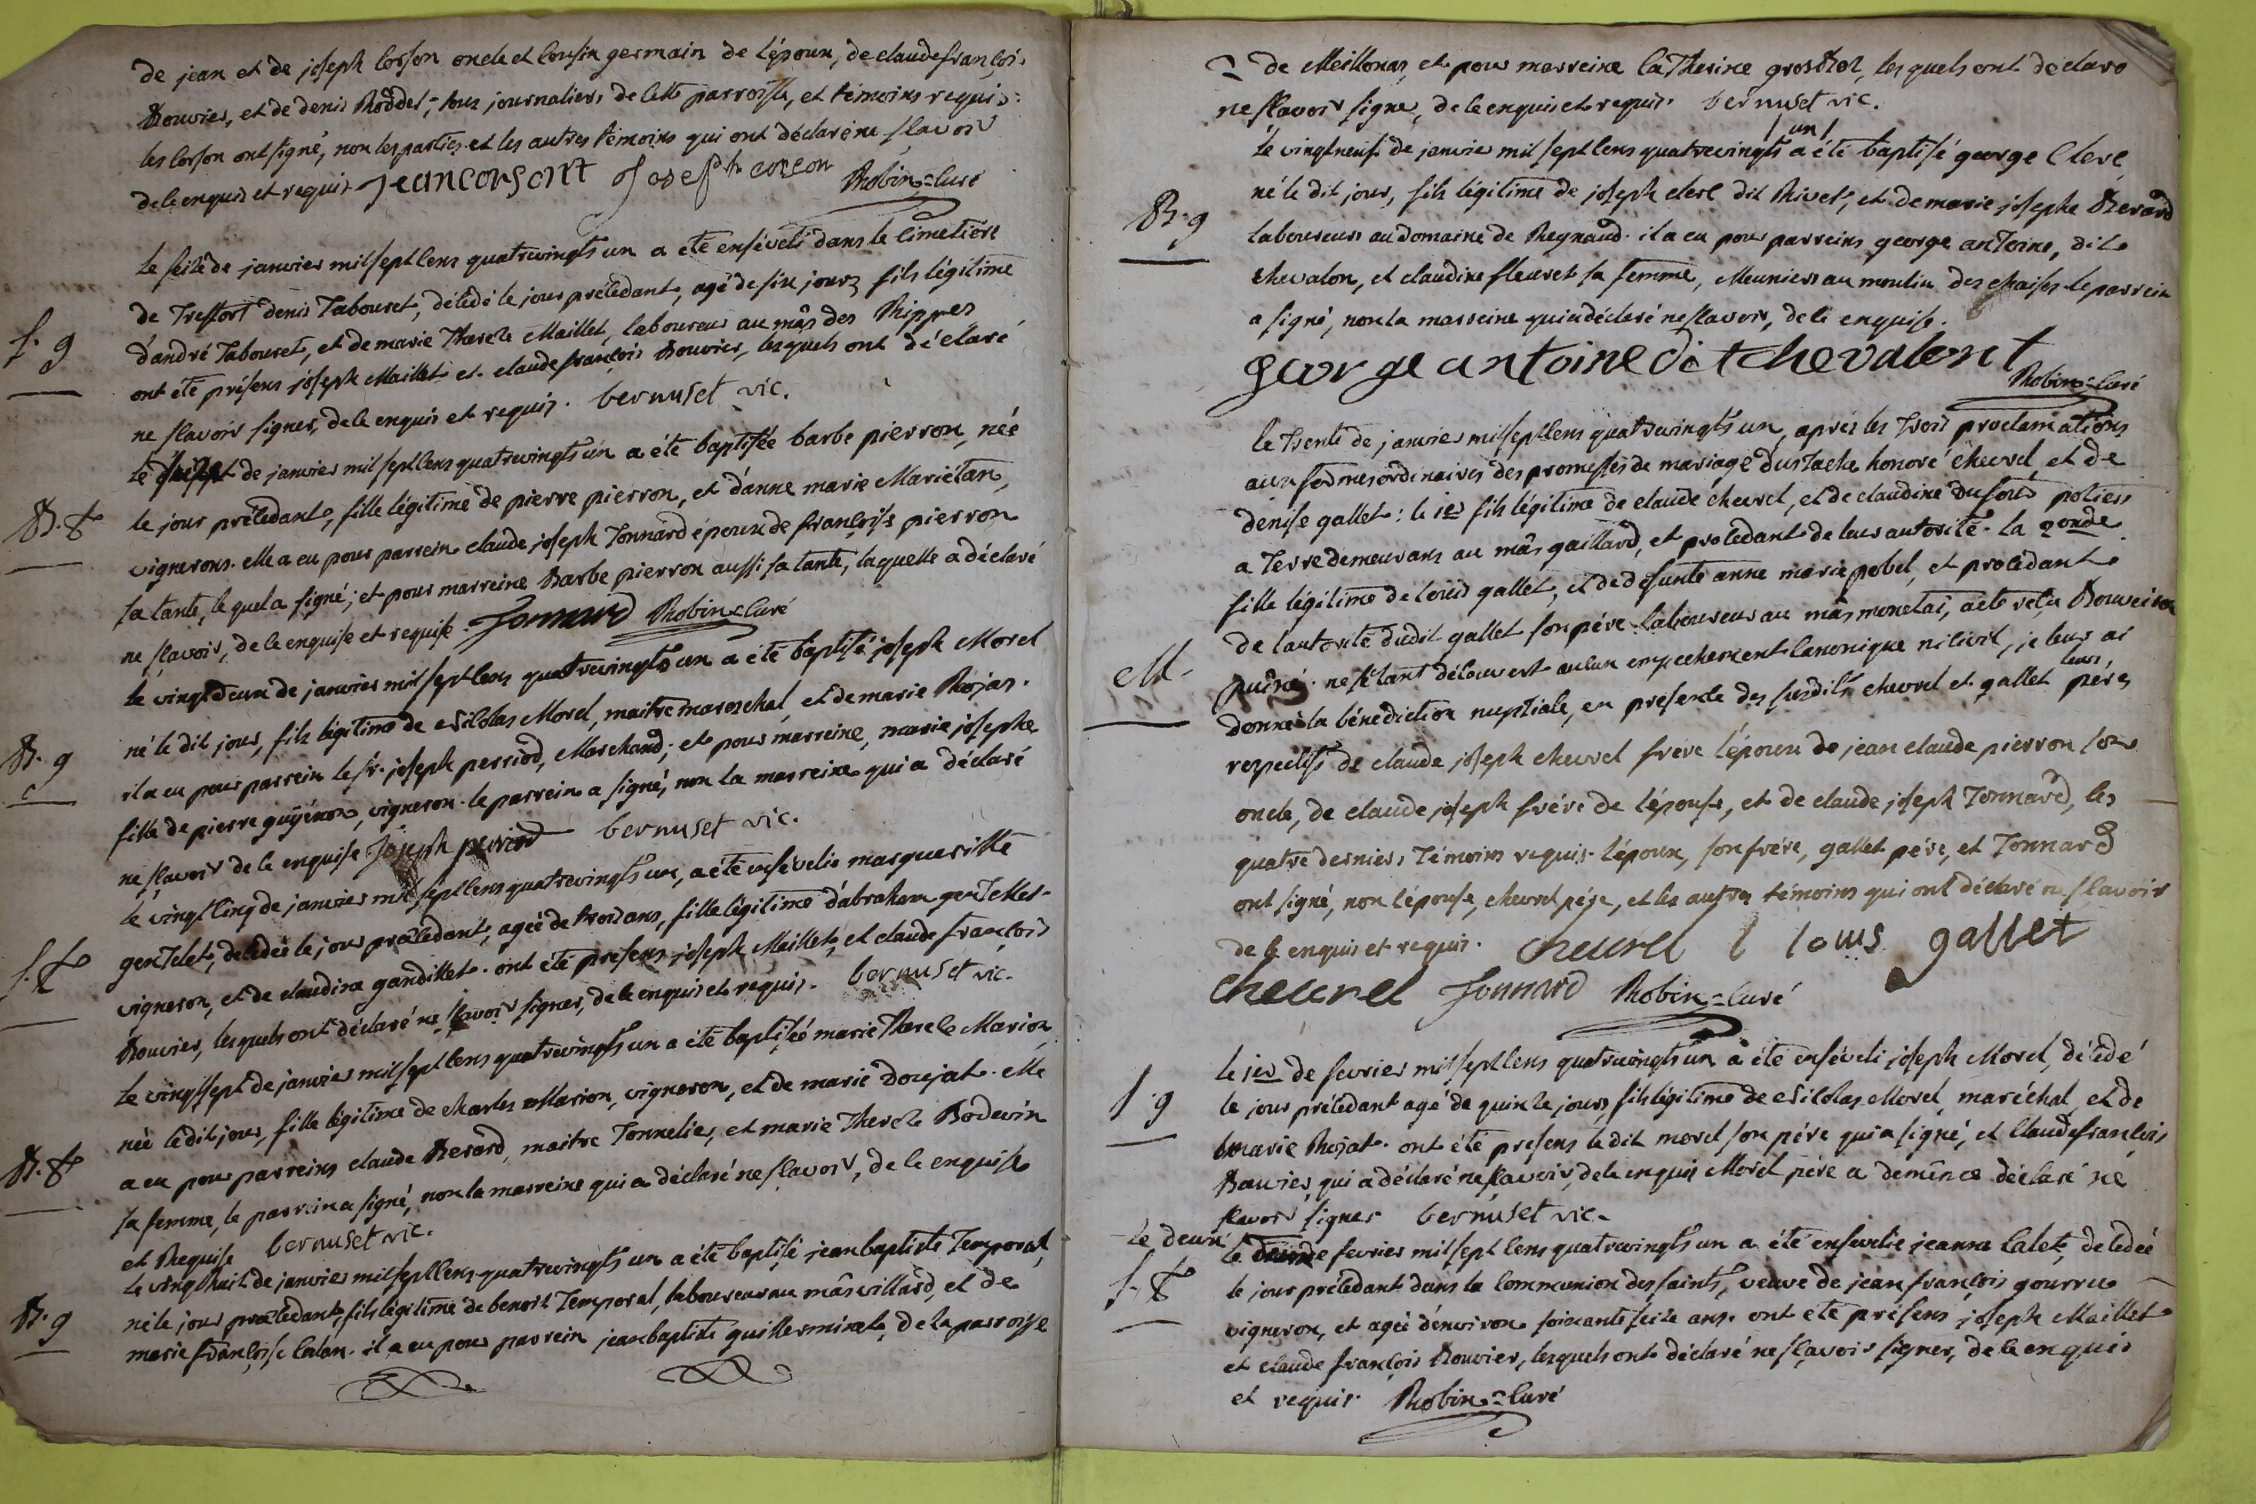 de jean et de joseph Corson oncle et Cousin germain de l'époux, de claude françois
Bouvier, et de denis Roddet, tous journaliers de cette parroisse, et témoins requis.
les Corson ont signé, non les parties et les autres témoins qui ont déclaré ne sçavoir
de ce enquis et requis jean corsont Joseph corcon Robin=curé
Le seize de janvier mil sept cens quatrevingts un a été enséveli dans le cimetière
de Treffort denis Tabouret, décédé le jour précédant, agé de six jours, fils légitime
S. g
d'andré Tabouret, et de marie Therese Maillet, laboureur au mâs des Rippes
ont été présens joseph Maillet et claude françois Bouvier, lesquels ont déclaré
ne sçavoir signer, de ce enquis et requis. bernuset vic.
Le de janvier mil sept cens quatrevingts un a été baptisée barbe pierron, née
B. f
le jour précédant, fille légitime de pierre pierron, et d'anne marie Mariétan,
vignerons. elle a eu pour parrein claude joseph Tonnard époux de françoise pierron
sa tante, lequel a signé; et pour marreine Barbe pierron aussi sa tante, laquelle a déclaré
ne sçavoir, de ce enquise et requise. Tonnard Robin=curé
Le vingtdeux de janvier mil sept cens quatrevingts un a été baptisé joseph Morel
B. g
né le dit jour, fils légitime de Nicolas Morel, maitre mareschal, et de marie Rojas.
il a eu pour parrein le sr. joseph perriod, Marchand; et pour marreine, marie josephe
fille de pierre guÿénon, vigneron. le parrein a signé, non la marreine qui a déclaré
ne sçavoir de ce enquise Joseph perriod bernuset vic.
Le vingt cinq de janvier mil sept cens quatrevingts un, a été ensévelie margueritte
S. f
gentelet, décédée le jour précédant, agée de trois ans, fille légitime d'abraham gentelet
vigneron, et de claudine gandillet. ont été présens joseph Maillet, et claude françois
Bouvier, lesquels ont déclaré ne sçavoir signer, de ce enquis et requis. bernuset vic.
Le vingtsept de janvier mil sept cens quatrevingts un a été baptisée marie Therese Marion,
B. f
née le dit jour, fille légitime de charles Marion, vigneron, et de marie Doujat. elle
a eu pour parreins claude Berard, maitre Tonnelier, et marie Therese Bodevin
sa femme, le parrein a signé, non la marreine qui a déclaré ne sçavoir, de ce enquise
et Requise bernuset vic.
Le vingthuit de janvier mil sept cens quatrevingts un a été baptisé jean baptiste Temporal,
B. g
né le jour précédant, fils légitime de benoit Temporal, laboureur au mâs villard, et de
marie françoise Calan. il a eu pour parrein jean baptiste guillerminet, de la parroisse
de Meillonas, et pour marreine Catherine, lesquels ont déclaré
ne sçavoir signer, de ce enquis et requis. bernuset vic.
/ un /
Le vingtneuf de janvier mil sept cens quatrevingts a été baptisé george Clerc
B. g
né le dit jour, fils légitime de joseph clerc dit Rivet, et de marie josephe Berard
laboureurs au domaine de Reynaud. il a eu pour parreins george antoine, dit
chevalon, et claudine fleuret sa femme, Meuniers au moulin des chaises. le parrein
a signé, non la marreine qui a déclaré ne sçavoir, de ce enquise.
george antoine dit chevalont
Robin=curé
Le Trente de janvier mil sept cens quatrevingts un, après les Trois proclamations
aux formes ordinaires des promesses de mariage d'ustache honoré chevrel, et de
denise gallet: le 1er fils légitime de claude chevrel, et de claudine dufour potiers
a Terre demeurans au mâs gaillard, et procédant de leur autorité. la 2onde
fille légitime de Loüis gallet, et de défunte anne marie pobel, et procédant
M.
de l'autorité dudit gallet son père laboureur au mâs monetai,
ne s'étant découvert aucun empechement Canonique ni civil, je leur ai
donné la bénédiction nuptiale, en présence des susdits chevrel et gallet leurs pères
respectifs de claude joseph chevrel frère l'époux de jean claude pierron son
oncle, de claude joseph frère de l'épouse, et de claude joseph Tonnard, les
quatre derniers Témoins requis. l'époux, son frère, gallet père, et Tonnard
ont signé, non l'épouse, chevrel père, et les autres témoins qui ont déclaré ne sçavoir
de ce enquis et requis. cheurel l louis gallet
cheurel Tonnard Robin=curé
Le 1er de fevrier mil sept cens quatrevingts un a été enséveli joseph Morel, décédé
S. g
le jour précédant agé de quinze jours, fils légitime de Nicolas Morel, maréchal, et de
marie Rojat. ont été présens le dit morel son père qui a signé, et Claude françois
Bouvier, qui a déclaré ne sçavoir, de ce enquis Morel père a demême déclaré ne
sçavoir signer bernuset vic.
Le deux
Le de fevrier mil sept cens quatrevingts un a été ensevelie jeanne Calet, décédée
S. f
le jour précédant dans la Communion des saints, veuve de jean françois gourru
vigneron, et agée d'environ soixante seize ans. ont été présens joseph Maillet
et claude françois Bouvier, lesquels ont déclaré ne sçavoir signer, de ce enquis
et requis. Robin=curé